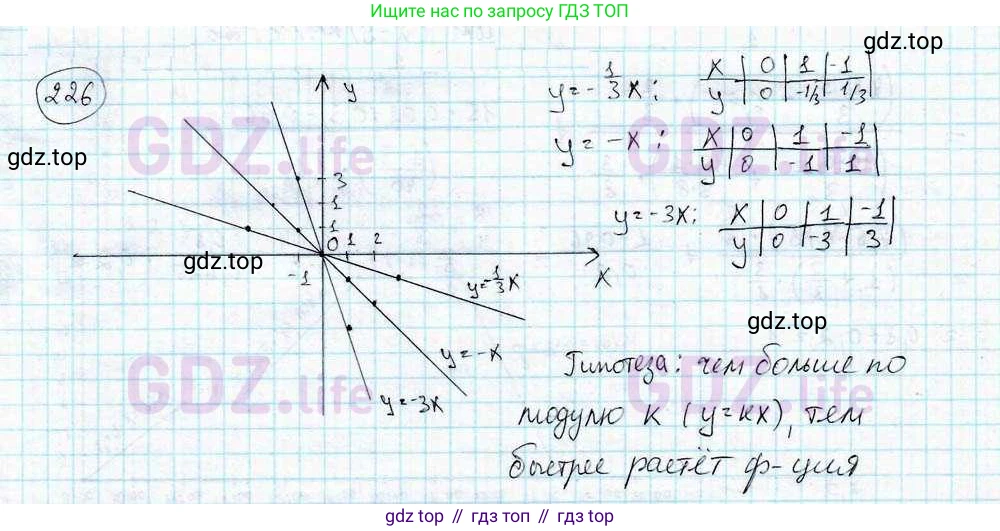 Ищите нас по запросу ГДЗ ТОП
gdz.top
226
y = -1/3 x ;
x | 0 | 1 | -1 |
y | 0 | -1/3 | 1/3 |
GDZ.life
GDZ.life
gdz.top
y = -x ;
x | 0 | 1 | -1 |
y | 0 | -1 | 1 |
y = -3x ;
x | 0 | 1 | -1 |
y | 0 | -3 | 3 |
y
3
1
1
0 1 2
-1
x
gdz.top
y = -1/3 x
gdz.top
y = -x
y = -3x
GDZ.life
GDZ.life
Гипотеза: чем больше по
модулю k (y=kx), тем
быстрее растёт ф-ция
gdz.top // gdz.top // gdz.top